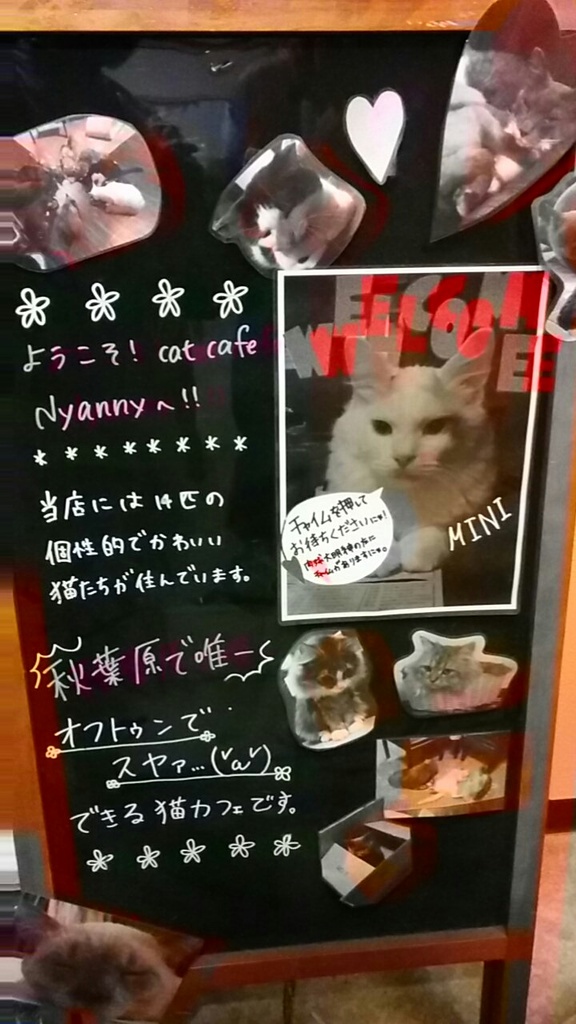 ようこそ! cat cafe
Nyannyへ!!
* * * * * * * *
当店には14匹の
個性的でかわいい
猫たちが住んでいます。
秋葉原で唯一
オフトゥンで
スヤァ...(ˇaˇ)
できる猫カフェです。
WELCOME
チャイムを押して
お待ちくださいにゃ!
大明神の右に
チャイムがありますにゃ。
MINI